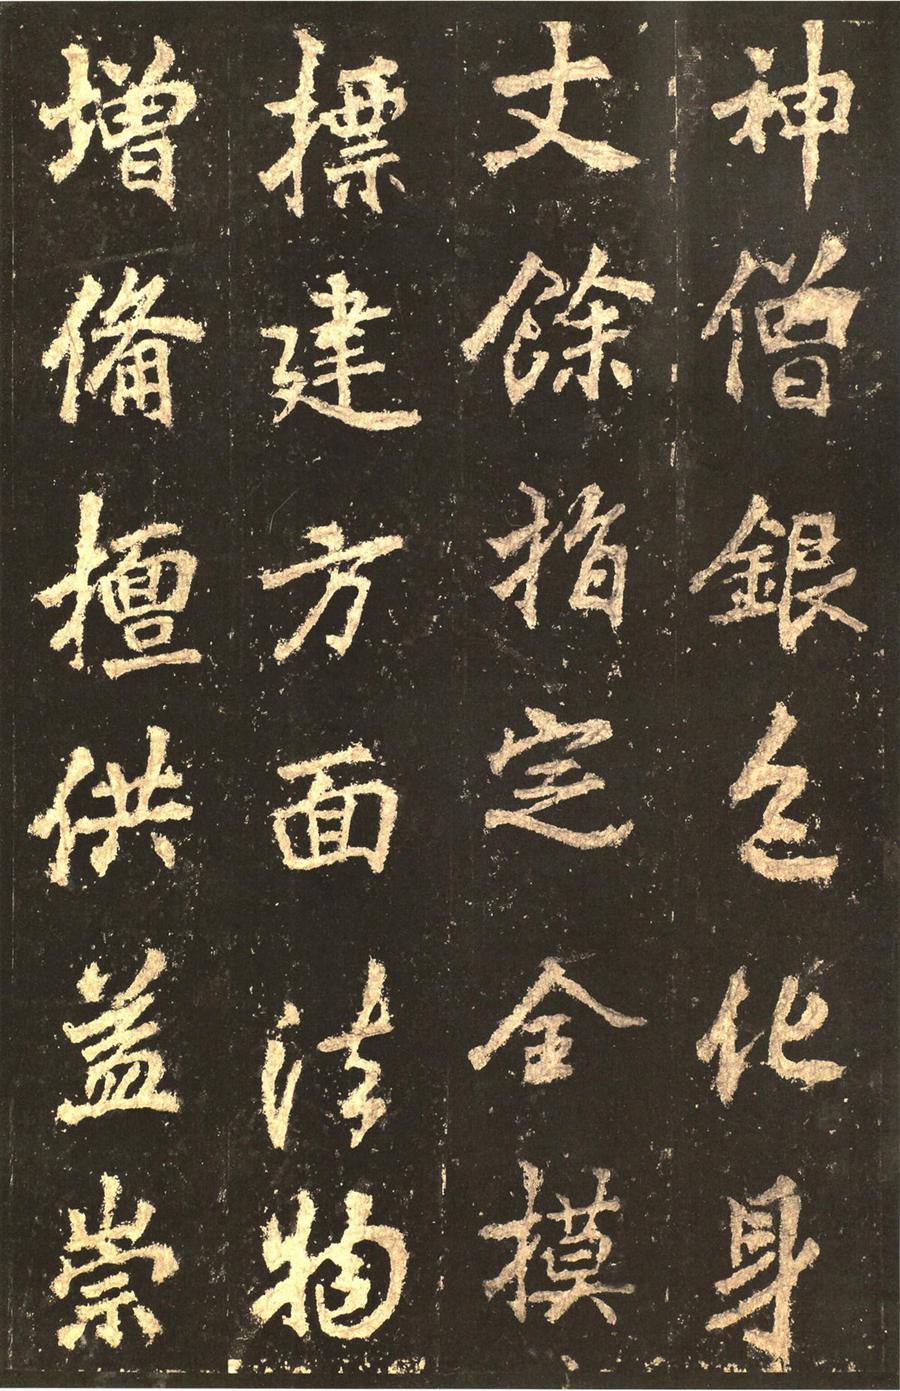 神僧銀色化身
丈餘指定全摸
摽建方面法物
增備擅供益崇